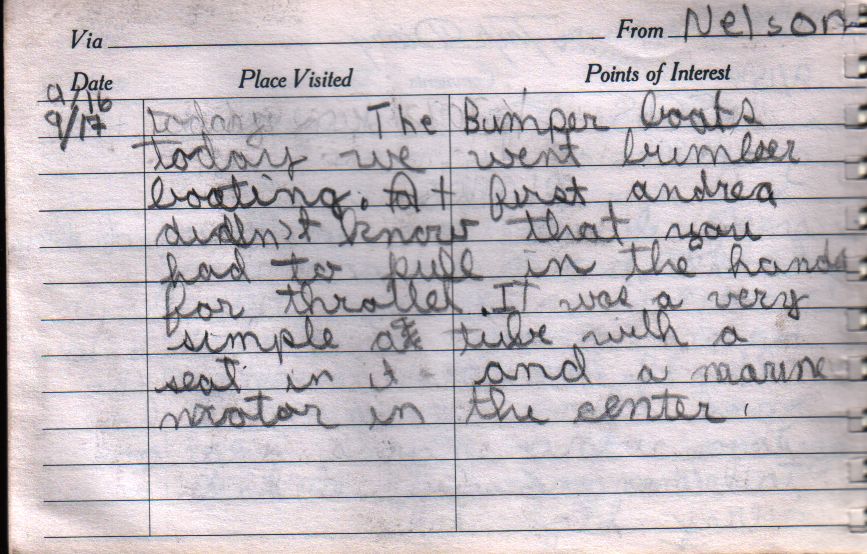 Via From Nelson
Date Place Visited Points of Interest
9/16
9/17 today The Bumper boats
today we went bumber
boating. At first andrea
didn't know that you
had to pull in the hands
for throttel. It was a very
simple tube with a
seat in it and a marine
motor in the center.